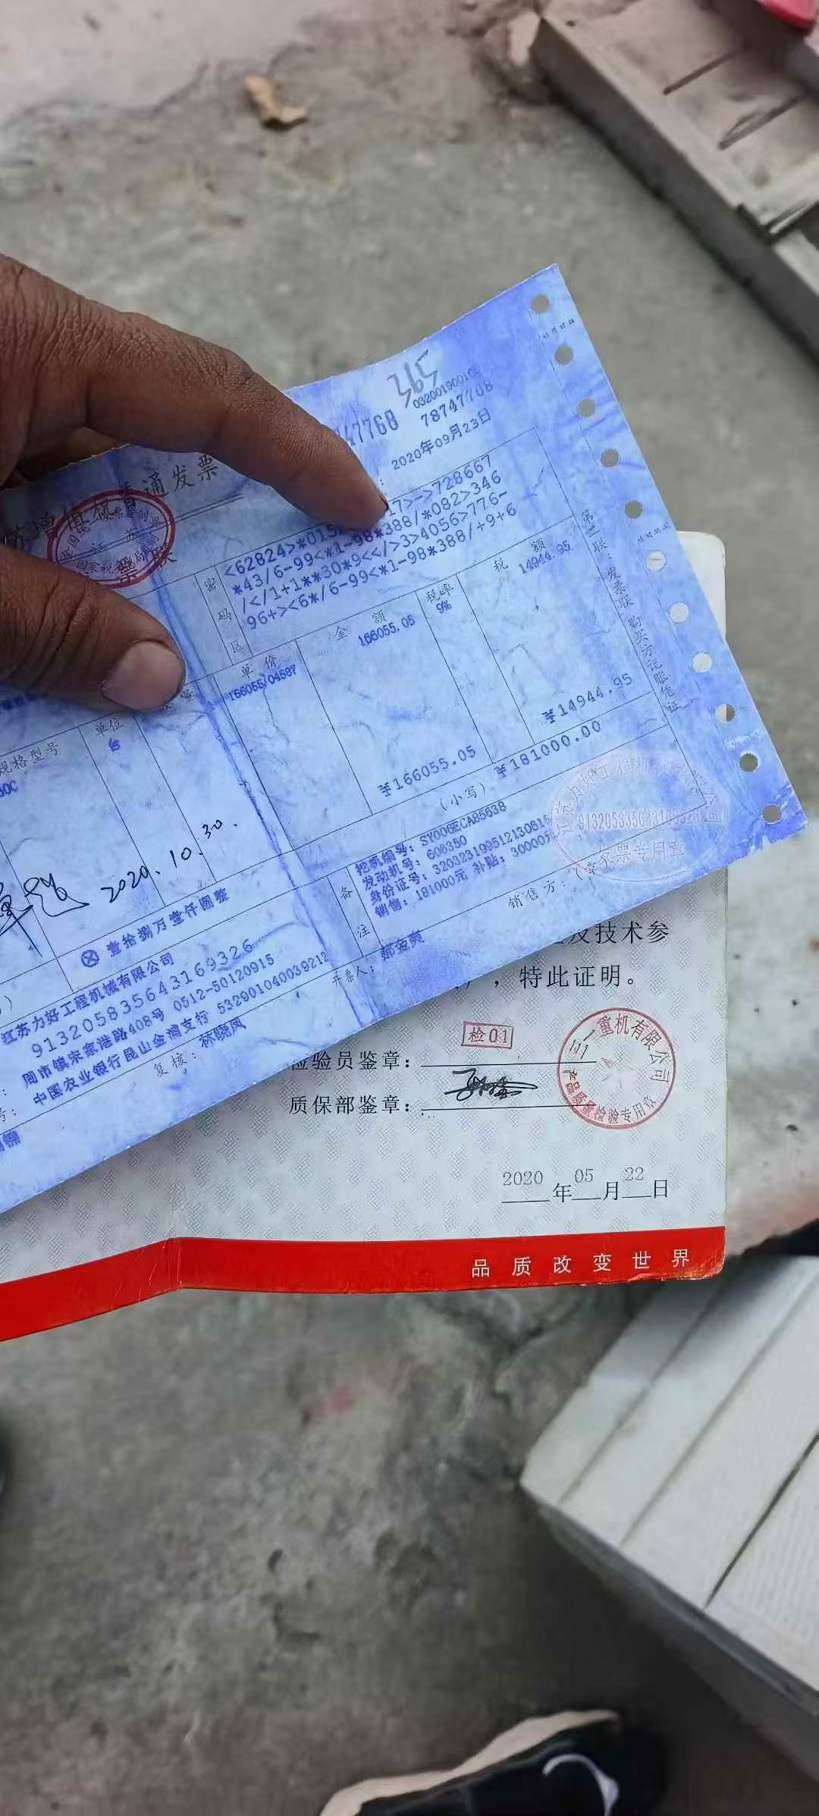 通发票
47760
032001900104
78747708
2020年09月23日
密码区
17>->728667
*43/6-99<*1-98*388/*082>346
/</1+1**30*9<</>3>4056>776-
96+><6*/6-99<*1-98*388/+9+6
规格型号
单位
单价
金额
税率
税额
台
166055.05
9%
14944.95
¥166055.05
¥14944.95
(小写) ¥181000.00
2020.10.30.
ⓧ 壹拾捌万壹仟圆整
备注
挖机编号: SY006ECA85638
发动机号: 606350
身份证号:
销售: 181000元 补贴: 30000元
第二联 发票联 购买方记账凭证
江苏力好工程机械有限公司
913205835643169326
周市镇宋家港路408号 0512-50120915
中国农业银行昆山金浦支行 532901040039212
复核: 林晓凤
开票人:
销售方:
发票专用章
及技术参
,特此证明。
检01
检验员鉴章:
质保部鉴章:
三一重机有限公司
检验专用章
2020年05月22日
品质改变世界